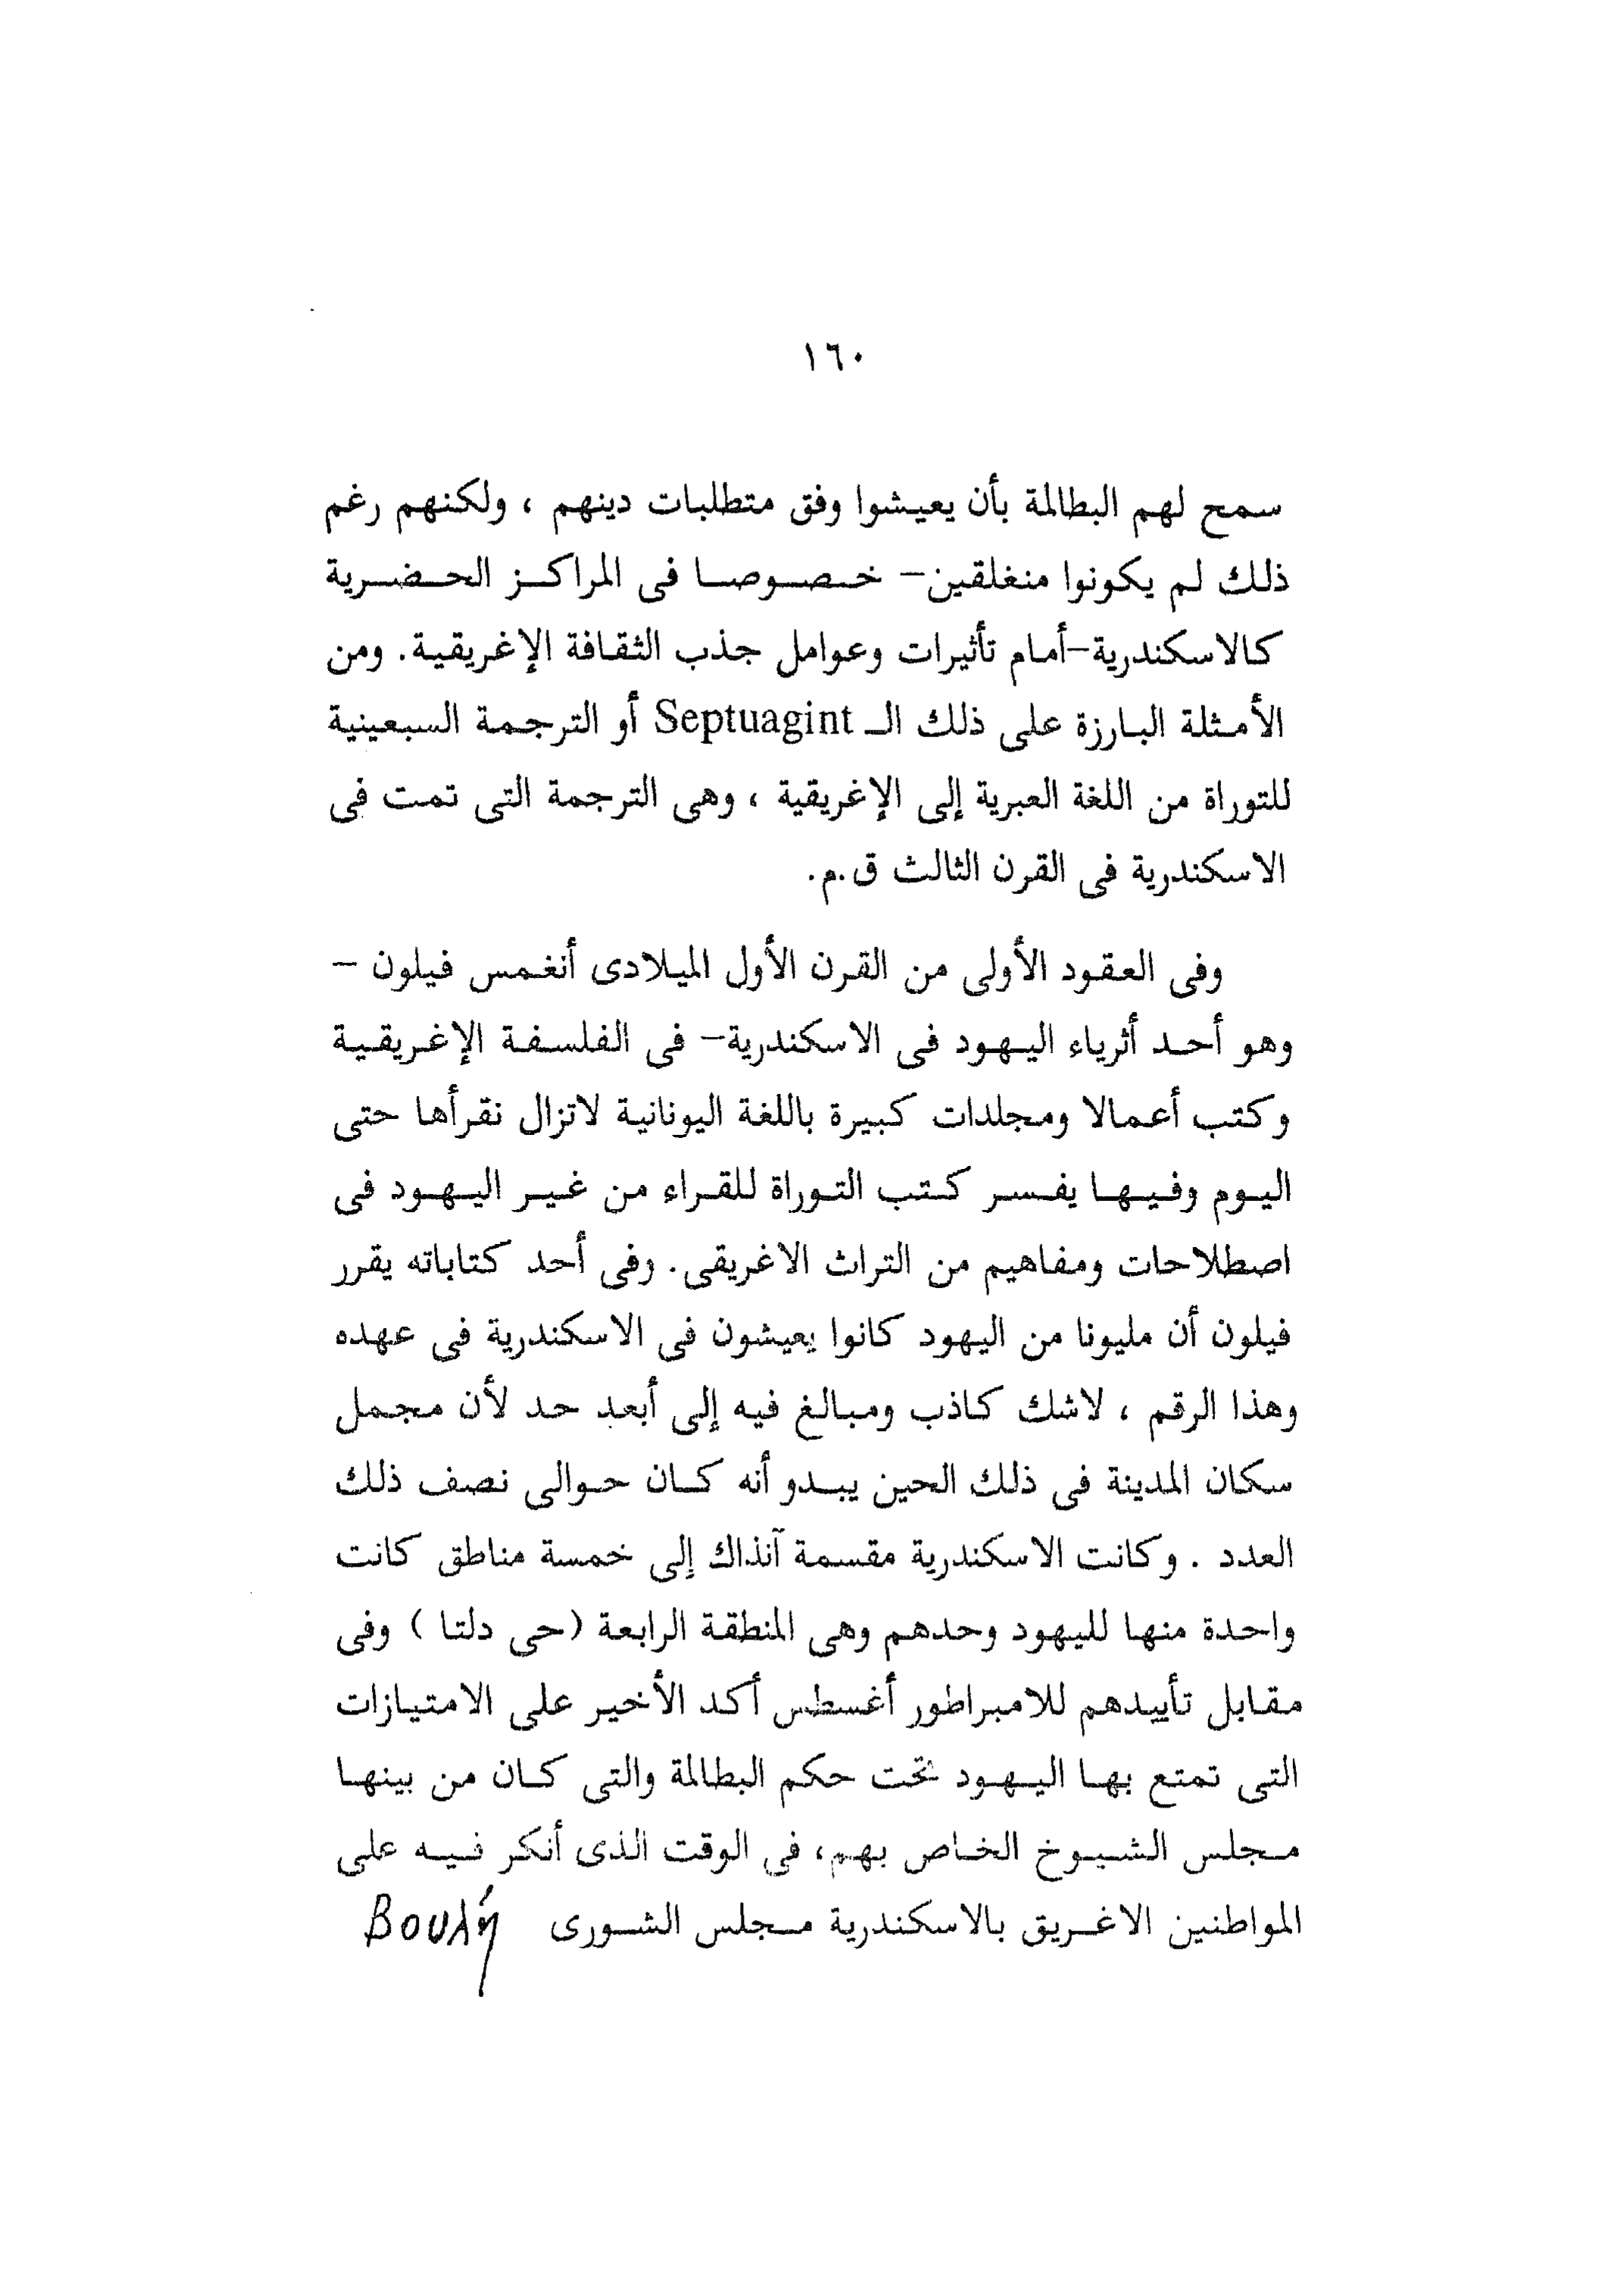 ١٦٠
سمح لهم البطالمة بأن يعيشوا وفق متطلبات دينهم ، ولكنهم رغم
ذلك لم يكونوا منغلقين– خصوصا فى المراكز الحضرية
كالاسكندرية–أمام تأثيرات وعوامل جذب الثقافة الإغريقية. ومن
الأمثلة البارزة على ذلك الـ Septuagint أو الترجمة السبعينية
للتوراة من اللغة العبرية إلى الإغريقية ، وهى الترجمة التى تمت فى
الاسكندرية فى القرن الثالث ق.م.
وفى العقود الأولى من القرن الأول الميلادى أنغمس فيلون –
وهو أحد أثرياء اليهود فى الاسكندرية– فى الفلسفة الإغريقية
وكتب أعمالا ومجلدات كبيرة باللغة اليونانية لاتزال نقرأها حتى
اليوم وفيها يفسر كتب التوراة للقراء من غير اليهود فى
اصطلاحات ومفاهيم من التراث الاغريقى. وفى أحد كتاباته يقرر
فيلون أن مليونا من اليهود كانوا يعيشون فى الاسكندرية فى عهده
وهذا الرقم ، لاشك كاذب ومبالغ فيه إلى أبعد حد لأن مجمل
سكان المدينة فى ذلك الحين يبدو أنه كان حوالى نصف ذلك
العدد . وكانت الاسكندرية مقسمة آنذاك إلى خمسة مناطق كانت
واحدة منها لليهود وحدهم وهى المنطقة الرابعة (حى دلتا ) وفى
مقابل تأييدهم للامبراطور أغسطس أكد الأخير على الامتيازات
التى تمتع بها اليهود تحت حكم البطالمة والتى كان من بينها
مجلس الشيوخ الخاص بهم، فى الوقت الذى أنكر فيه على
المواطنين الاغريق بالاسكندرية مجلس الشورى Βουλή